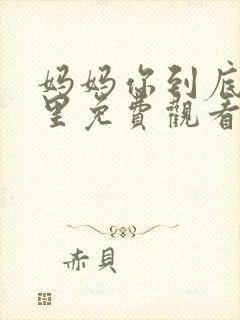 妈妈你到底
里免費觀看
赤貝